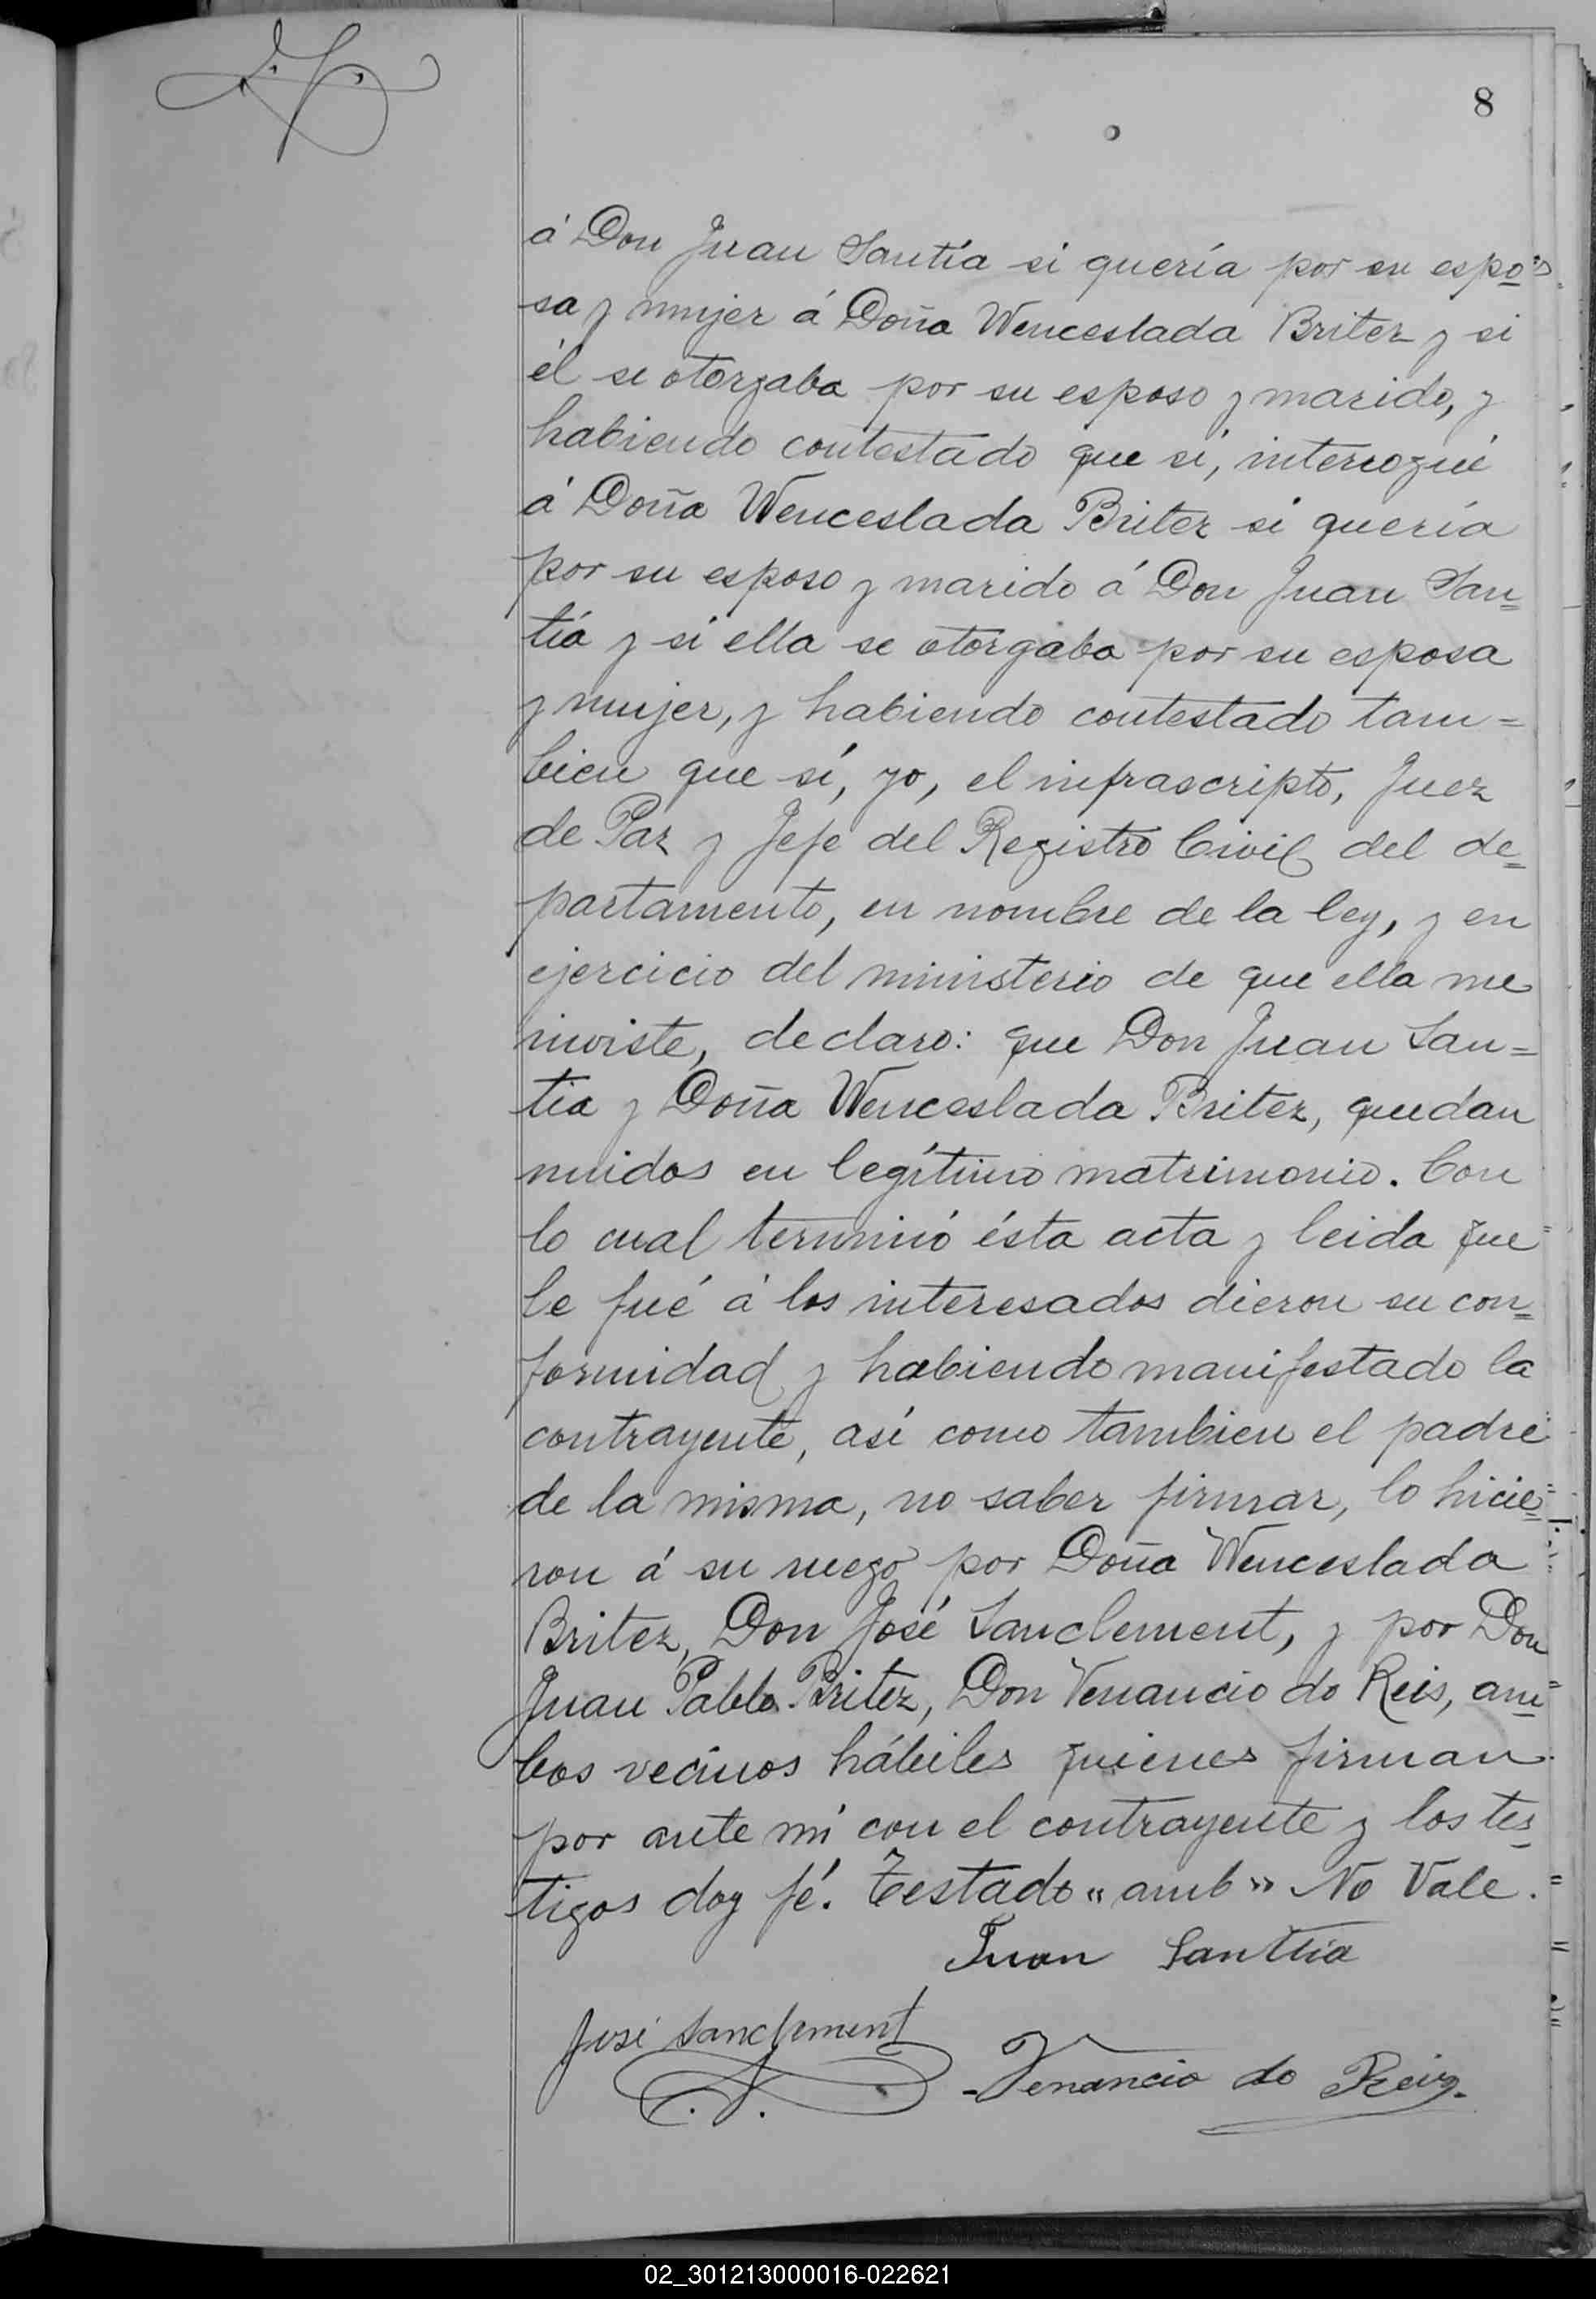 8
á Don Juan Santía si quería por su espo=
sa y mujer á Doña Wenceslada Britez y si
él se otorgaba por su esposo y marido, y
habiendo contestado que sí, interrogué
á Doña Wenceslada Britez si quería
por su esposo y marido á Don Juan San=
tía y si ella se otorgaba por su esposa
y mujer, y habiendo contestado tam=
bien que sí, yo, el infrascripto, Juez
de Paz y Jefe del Registro Civil del de=
partamento, en nombre de la ley, y en
ejercicio del ministerio de que ella me
inviste, declaro: que Don Juan San=
tia y Doña Wenceslada Britez, quedan
unidos en legítimo matrimonio. Con
lo cual terminó ésta acta y leida que
le fué á los interesados dieron su con=
formidad y habiendo manifestado la
contrayente, así como tambien el padre
de la misma, no saber firmar, lo hicie=
ron á su ruego por Doña Wenceslada
Britez, Don José Sanclement, y por Don
Juan Pablo Britez, Don Venancio do Reis, am=
bos vecinos hábiles quienes firman
por ante mí con el contrayente y los tes=
tigos doy fé. Testado «amb» No Vale.
Juan Santtia
José Sanclement
Venancio do Reis
02_301213000016-022621